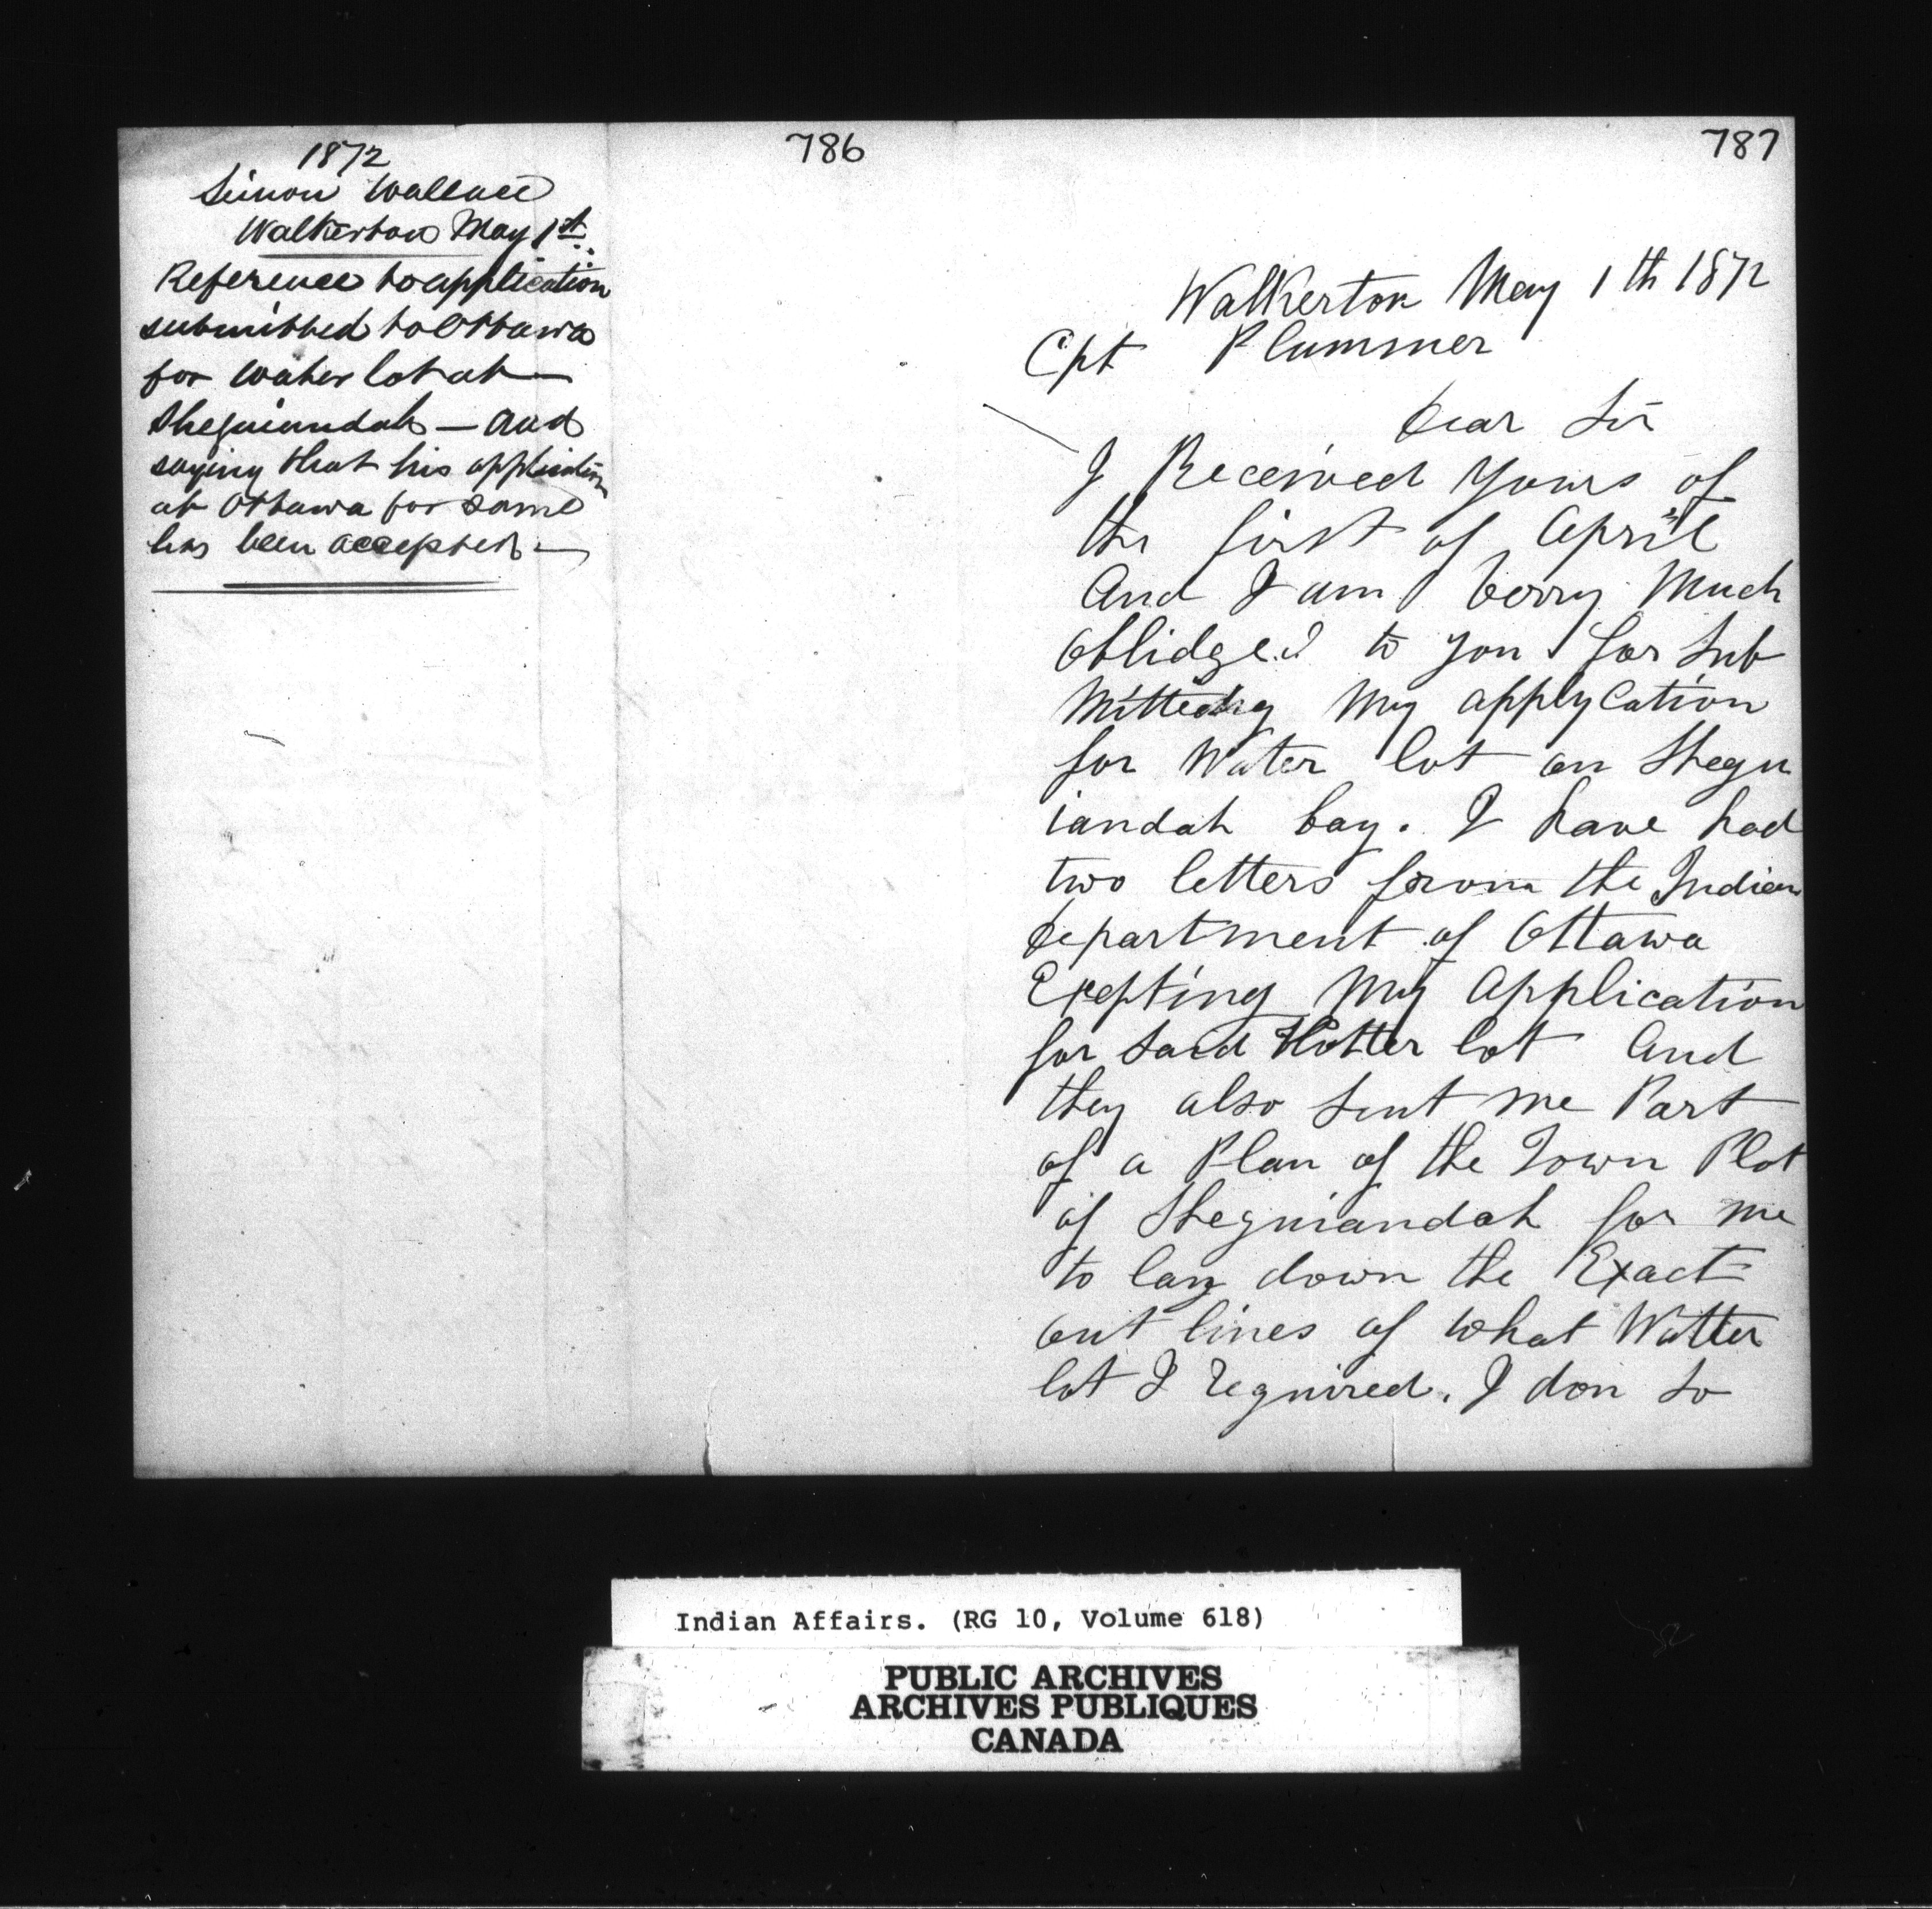 1872
Simon Wallace
Walkerton May 1st
Reference to application
submitted to Ottawa
for water lot at
Sheguiandah — and
saying that his application
at Ottawa for same
has been accepted —
786
787
Walkerton May 1th 1872
Cpt Plummer
Dear Sir
I Received Yours of
the first of April
And I am verry Much
Oblidged to you for Sub
Mitting My applycation
for Water lot on Shegu
iandah bay. I have had
two letters from the Indian
Department of Ottawa
Exepting My Application
for Said Watter lot And
they also Sent me Part
of a Plan of the Town Plot
of Sheguiandah for me
to lay down the Exact
out lines of what Watter
lot I required. I don So
Indian Affairs. (RG 10, Volume 618)
PUBLIC ARCHIVES
ARCHIVES PUBLIQUES
CANADA